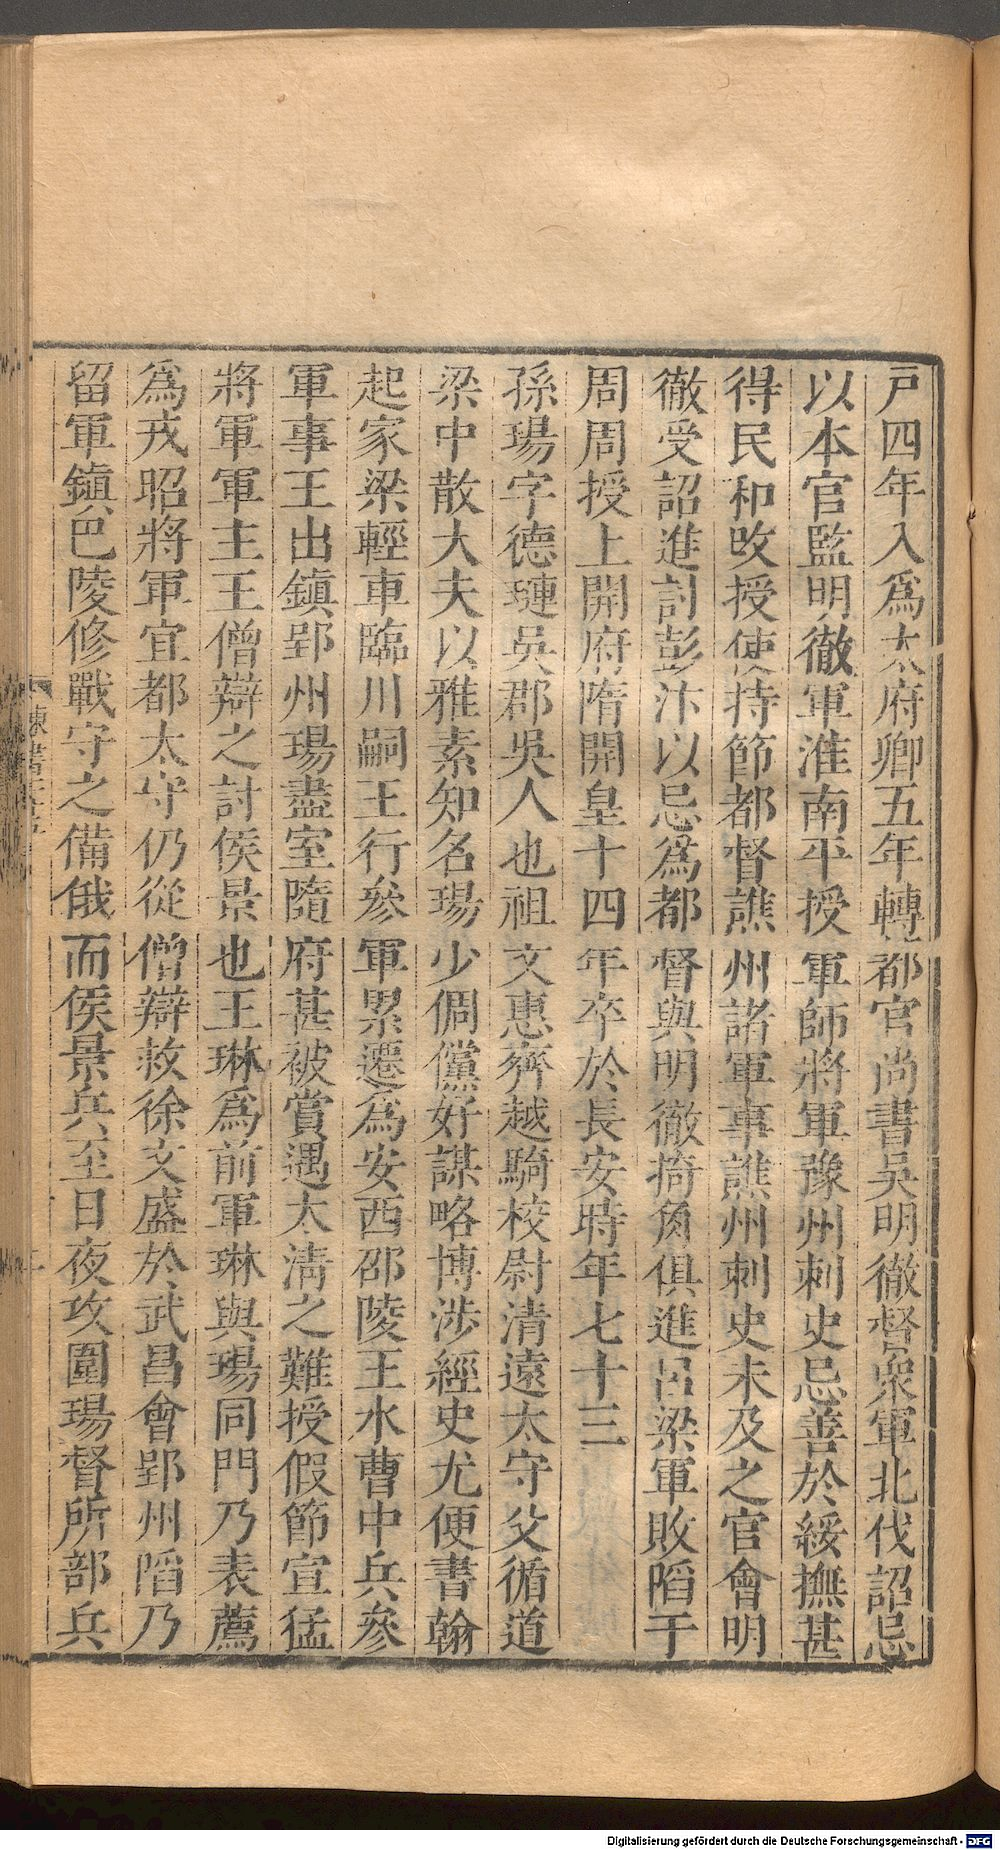 戸四年入爲太府卿五年轉都官尚書吳明徹督衆軍北伐詔忌
以本官監明徹軍淮南平授軍師將軍豫州刺史忌善於綏撫甚
得民和改授使持節都督譙州諸軍事譙州刺史未及之官會明
徹受詔進討彭汴以忌爲都督與明徹掎角俱進呂梁軍敗䧟于
周周授上開府隋開皇十四年卒於長安時年七十三
孫瑒字德璉吳郡吳人也祖文惠齊越騎校尉清遠太守父循道
梁中散大夫以雅素知名瑒少倜儻好謀略博涉經史尤便書翰
起家梁輕車臨川嗣王行參軍累遷爲安西邵陵王水曹中兵參
軍事王出鎮郢州瑒盡室隨府甚被賞遇太清之難授假節宣猛
將軍軍主王僧辯之討侯景也王琳爲前軍琳與瑒同門乃表薦
爲戎昭將軍宜都太守仍從僧辯救徐文盛於武昌會郢州䧟乃
留軍鎮巴陵修戰守之備俄而侯景兵至日夜攻圍瑒督所部兵
Digitalisierung gefördert durch die Deutsche Forschungsgemeinschaft - DFG